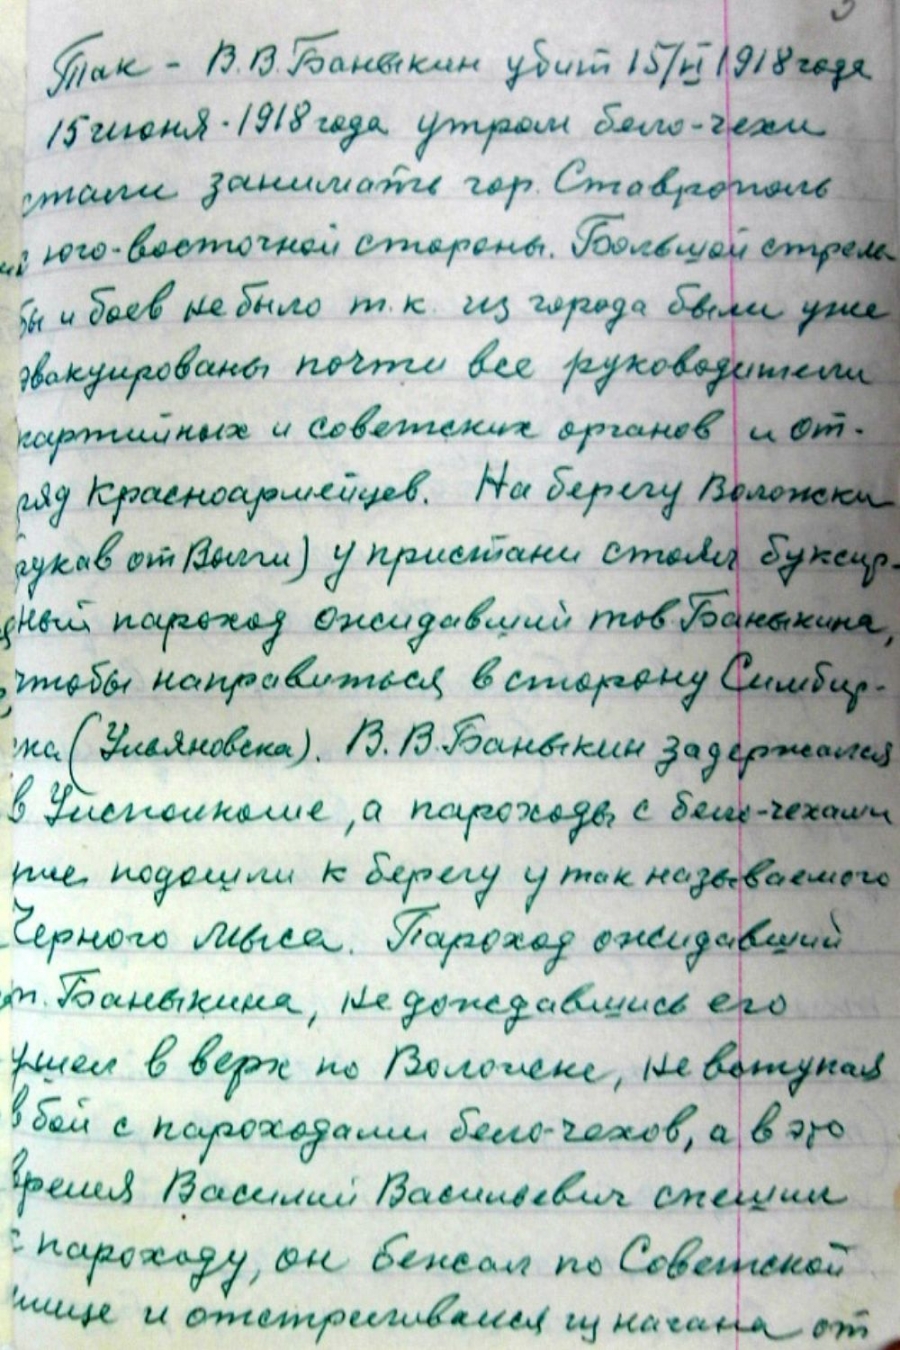 Так - В.В. Баныкин убит 15/VI 1918 года
15 июня - 1918 года утром бело-чехи
стали занимать гор. Ставрополь
с юго-восточной стороны. Большой стрель
бы и боев не было т.к. из города были уже
эвакуированы почти все руководители
партийных и советских органов и от-
ряд Красноармейцев. На берегу Воложки
рукав от Волги) у пристани стоял буксир-
ный пароход ожидавший тов. Баныкина,
чтобы направиться в сторону Симбир-
ска (Ульяновска). В.В. Баныкин задержался
в Исполкоме, а пароходы с бело-чехами
уже подошли к берегу у так называемого
Черного мыса. Пароход ожидавший
т. Баныкина, не дождавшись его
ушел в верх по Воложке, не вступая
в бой с пароходами бело-чехов, а в это
время Василий Васильевич спешил
к пароходу, он бежал по Советской
улице и отстреливался из нагана от